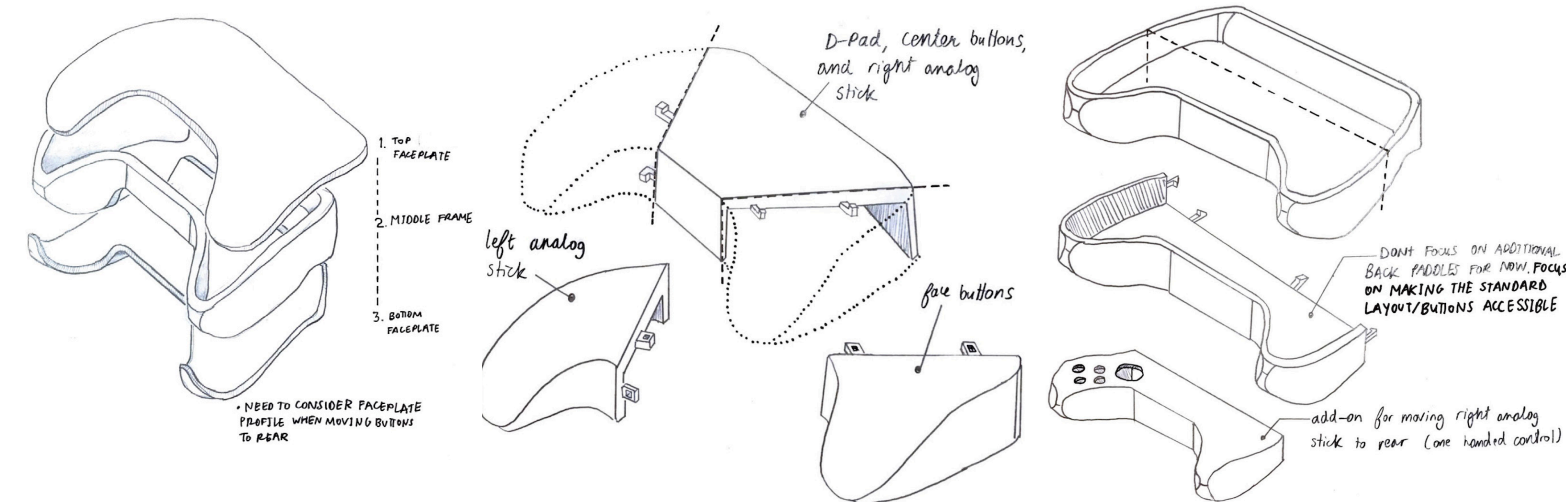 1. TOP
FACEPLATE
2. MIDDLE FRAME
3. BOTTOM
FACEPLATE
• NEED TO CONSIDER FACEPLATE
PROFILE WHEN MOVING BUTTONS
TO REAR
D-Pad, center buttons,
and right analog
stick
left analog
stick
face buttons
DONT FOCUS ON ADDITIONAL
BACK PADDLES FOR NOW. FOCUS
ON MAKING THE STANDARD
LAYOUT/BUTTONS ACCESSIBLE
add-on for moving right analog
stick to rear (one handed control)